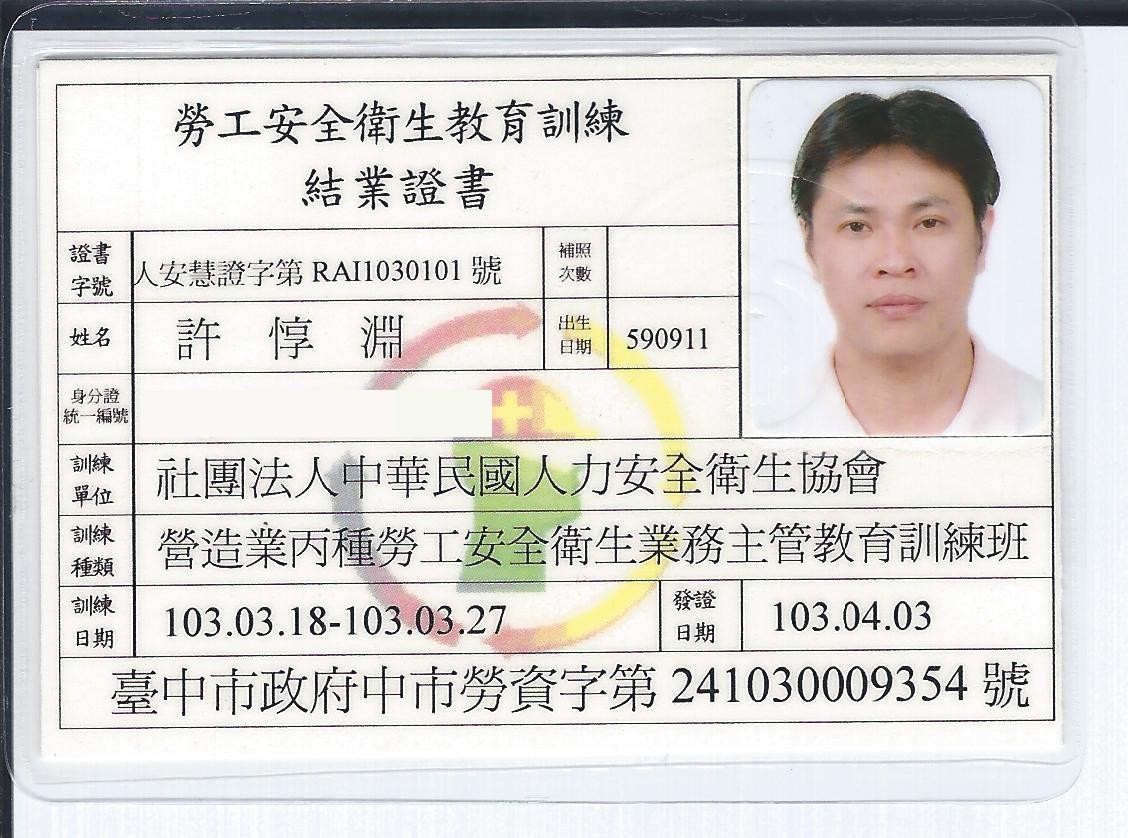 勞工安全衛生教育訓練
結業證書
證書字號 人安慧證字第 RAI1030101 號 補照次數
姓名 許惇淵 出生日期 590911
身分證統一編號
訓練單位 社團法人中華民國人力安全衛生協會
訓練種類 營造業丙種勞工安全衛生業務主管教育訓練班
訓練日期 103.03.18-103.03.27 發證日期 103.04.03
臺中市政府中市勞資字第 241030009354 號